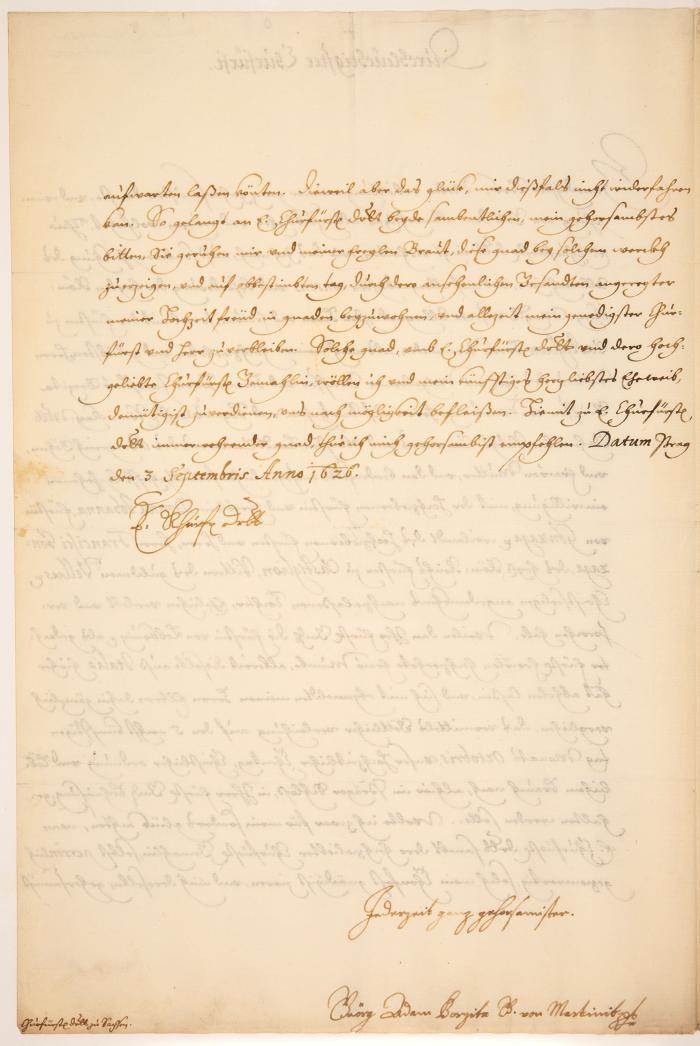 aufwarten laßen könten. Dieweil aber das glück, mir dießfals nicht widerfahren
kan. So gelangt an E. Churfürstl. dhlt beyde sambentlichen, mein gehorsambstes
bitten, Sie geruhen mir und meiner freylen Braut, diese gnad bey solchem werckh
zuerzeigen, und auf obbestimbten tag, durch dero ansehenlichen Gesandten angeregter
meiner Hochzeit freud in gnaden beyzuwohnen, und allezeit mein genedigster Chur-
fürst und Herr zuverbleiben. Solche gnad, umb E. Churfürstl. dhlt und dero hoch-
geliebte Churfürstl. Gemahlin, wöllen ich und mein künfftiges herzliebstes Eheweib,
demütigist zuverdienen, uns nach möglikeit befleißen. Hiemit zu E. Churfürstl.
dhlt immerwehrender gnad, thue ich mich gehorsambist empfehlen. Datum Prag
den 3. Septembris Anno 1626.
E. Churfl. dhlt
Jederzeit ganz gehorsamister.
Geörg Adam Borzita G. von Martinitz
Churfürstl. dhlt zu Sachsen.